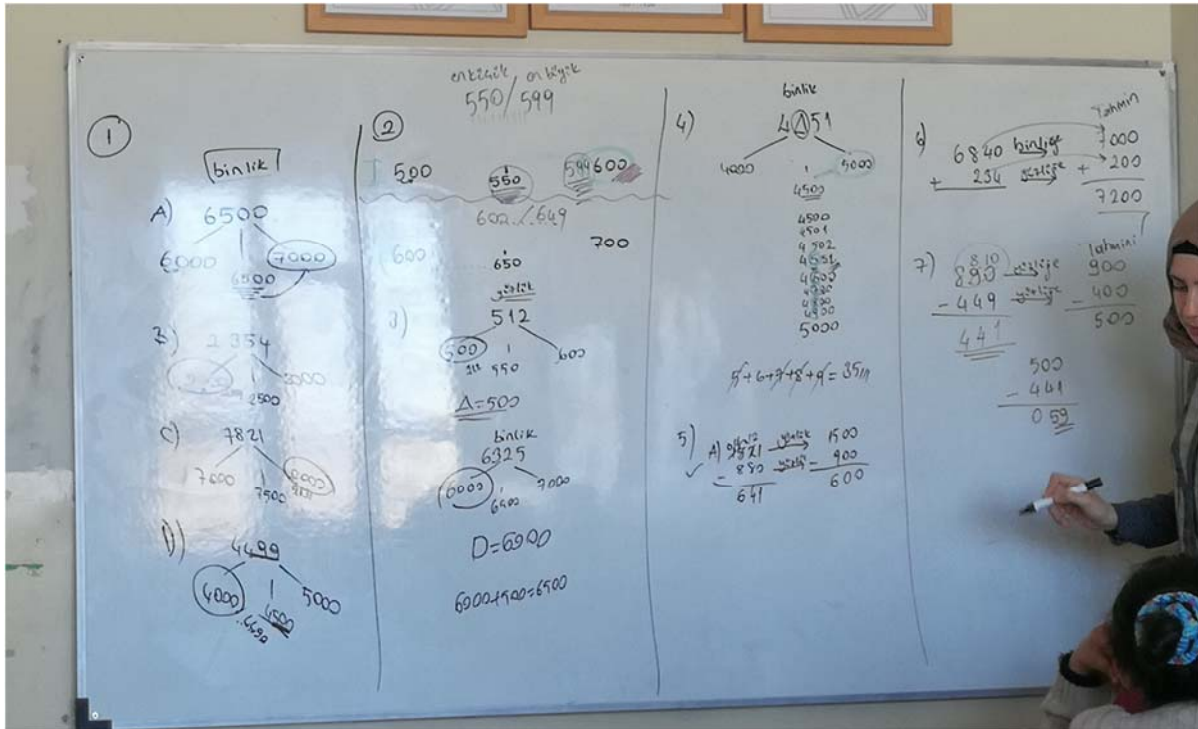 1
binlik
A) 6500
6000 7000
6500
B) 2354
3000
2500
C) 7821
7000
7500
D) 4499
4000 5000
4500
4490
en küçük / en büyük
550 / 599
2
500 550 599 600
602 / 649
600 650 700
yüzlük
3) 512
500 550 600
Δ=500
binlik
6325
6000 7000
D=6000
6000+500=6500
4) binlik
4Δ51
4000 5000
4500
4500
4501
4502
4551
4600
4900
5000
5+6+7+8+9=35
5) A) 1521 yüzlük 1500
- 880 - 900
641 600
6) 6840 binliğe 7000
tahmin
+ 234 yüzlüğe + 200
7200
7) 890 yüzlüğe 900
tahmini
- 449 yüzlüğe - 400
441 500
500
- 441
059